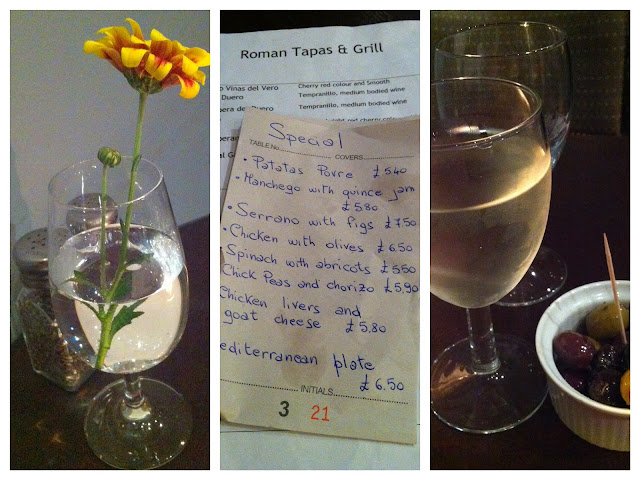 Roman Tapas & Grill
Vinas del Vero Cherry red colour and Smooth
Duero Tempranillo, medium bodied wine
Tempranillo, medium bodied wine
red cherry
Special
TABLE No. COVERS
• Patatas Povre £ 5.40
• Manchego with quince jam
£ 5.80
• Serrano with figs £ 7.50
• Chicken with olives £ 6.50
Spinach with abricots £ 5.50
Chick Peas and chorizo £ 5,90
Chicken livers and
goat cheese £ 5,80
editerranean plate
£ 6.50
INITIALS
3 21